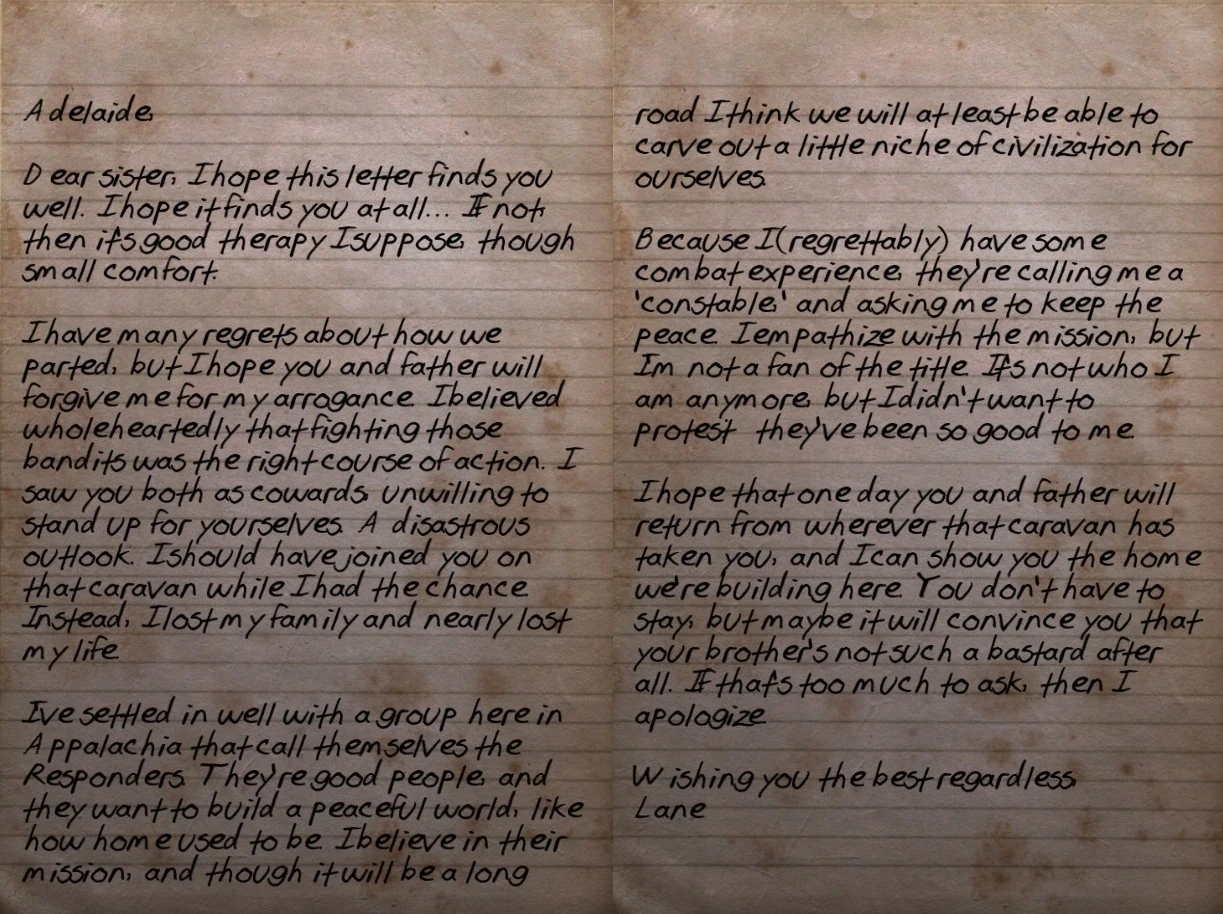 Adelaide,
Dear sister, I hope this letter finds you
well. I hope it finds you at all... If not,
then it's good therapy I suppose, though
small comfort.
I have many regrets about how we
parted, but I hope you and father will
forgive me for my arrogance. I believed
wholeheartedly that fighting those
bandits was the right course of action. I
saw you both as cowards, unwilling to
stand up for yourselves. A disastrous
outlook. I should have joined you on
that caravan while I had the chance.
Instead, I lost my family and nearly lost
my life.
I've settled in well with a group here in
Appalachia that call themselves the
Responders. They're good people, and
they want to build a peaceful world, like
how home used to be. I believe in their
mission, and though it will be a long
road I think we will at least be able to
carve out a little niche of civilization for
ourselves.
Because I (regrettably) have some
combat experience, they're calling me a
'constable,' and asking me to keep the
peace. I empathize with the mission, but
I'm not a fan of the title. It's not who I
am anymore, but I didn't want to
protest they've been so good to me.
I hope that one day you and father will
return from wherever that caravan has
taken you, and I can show you the home
we're building here. You don't have to
stay, but maybe it will convince you that
your brother's not such a bastard after
all. If that's too much to ask, then I
apologize.
Wishing you the best regardless,
Lane